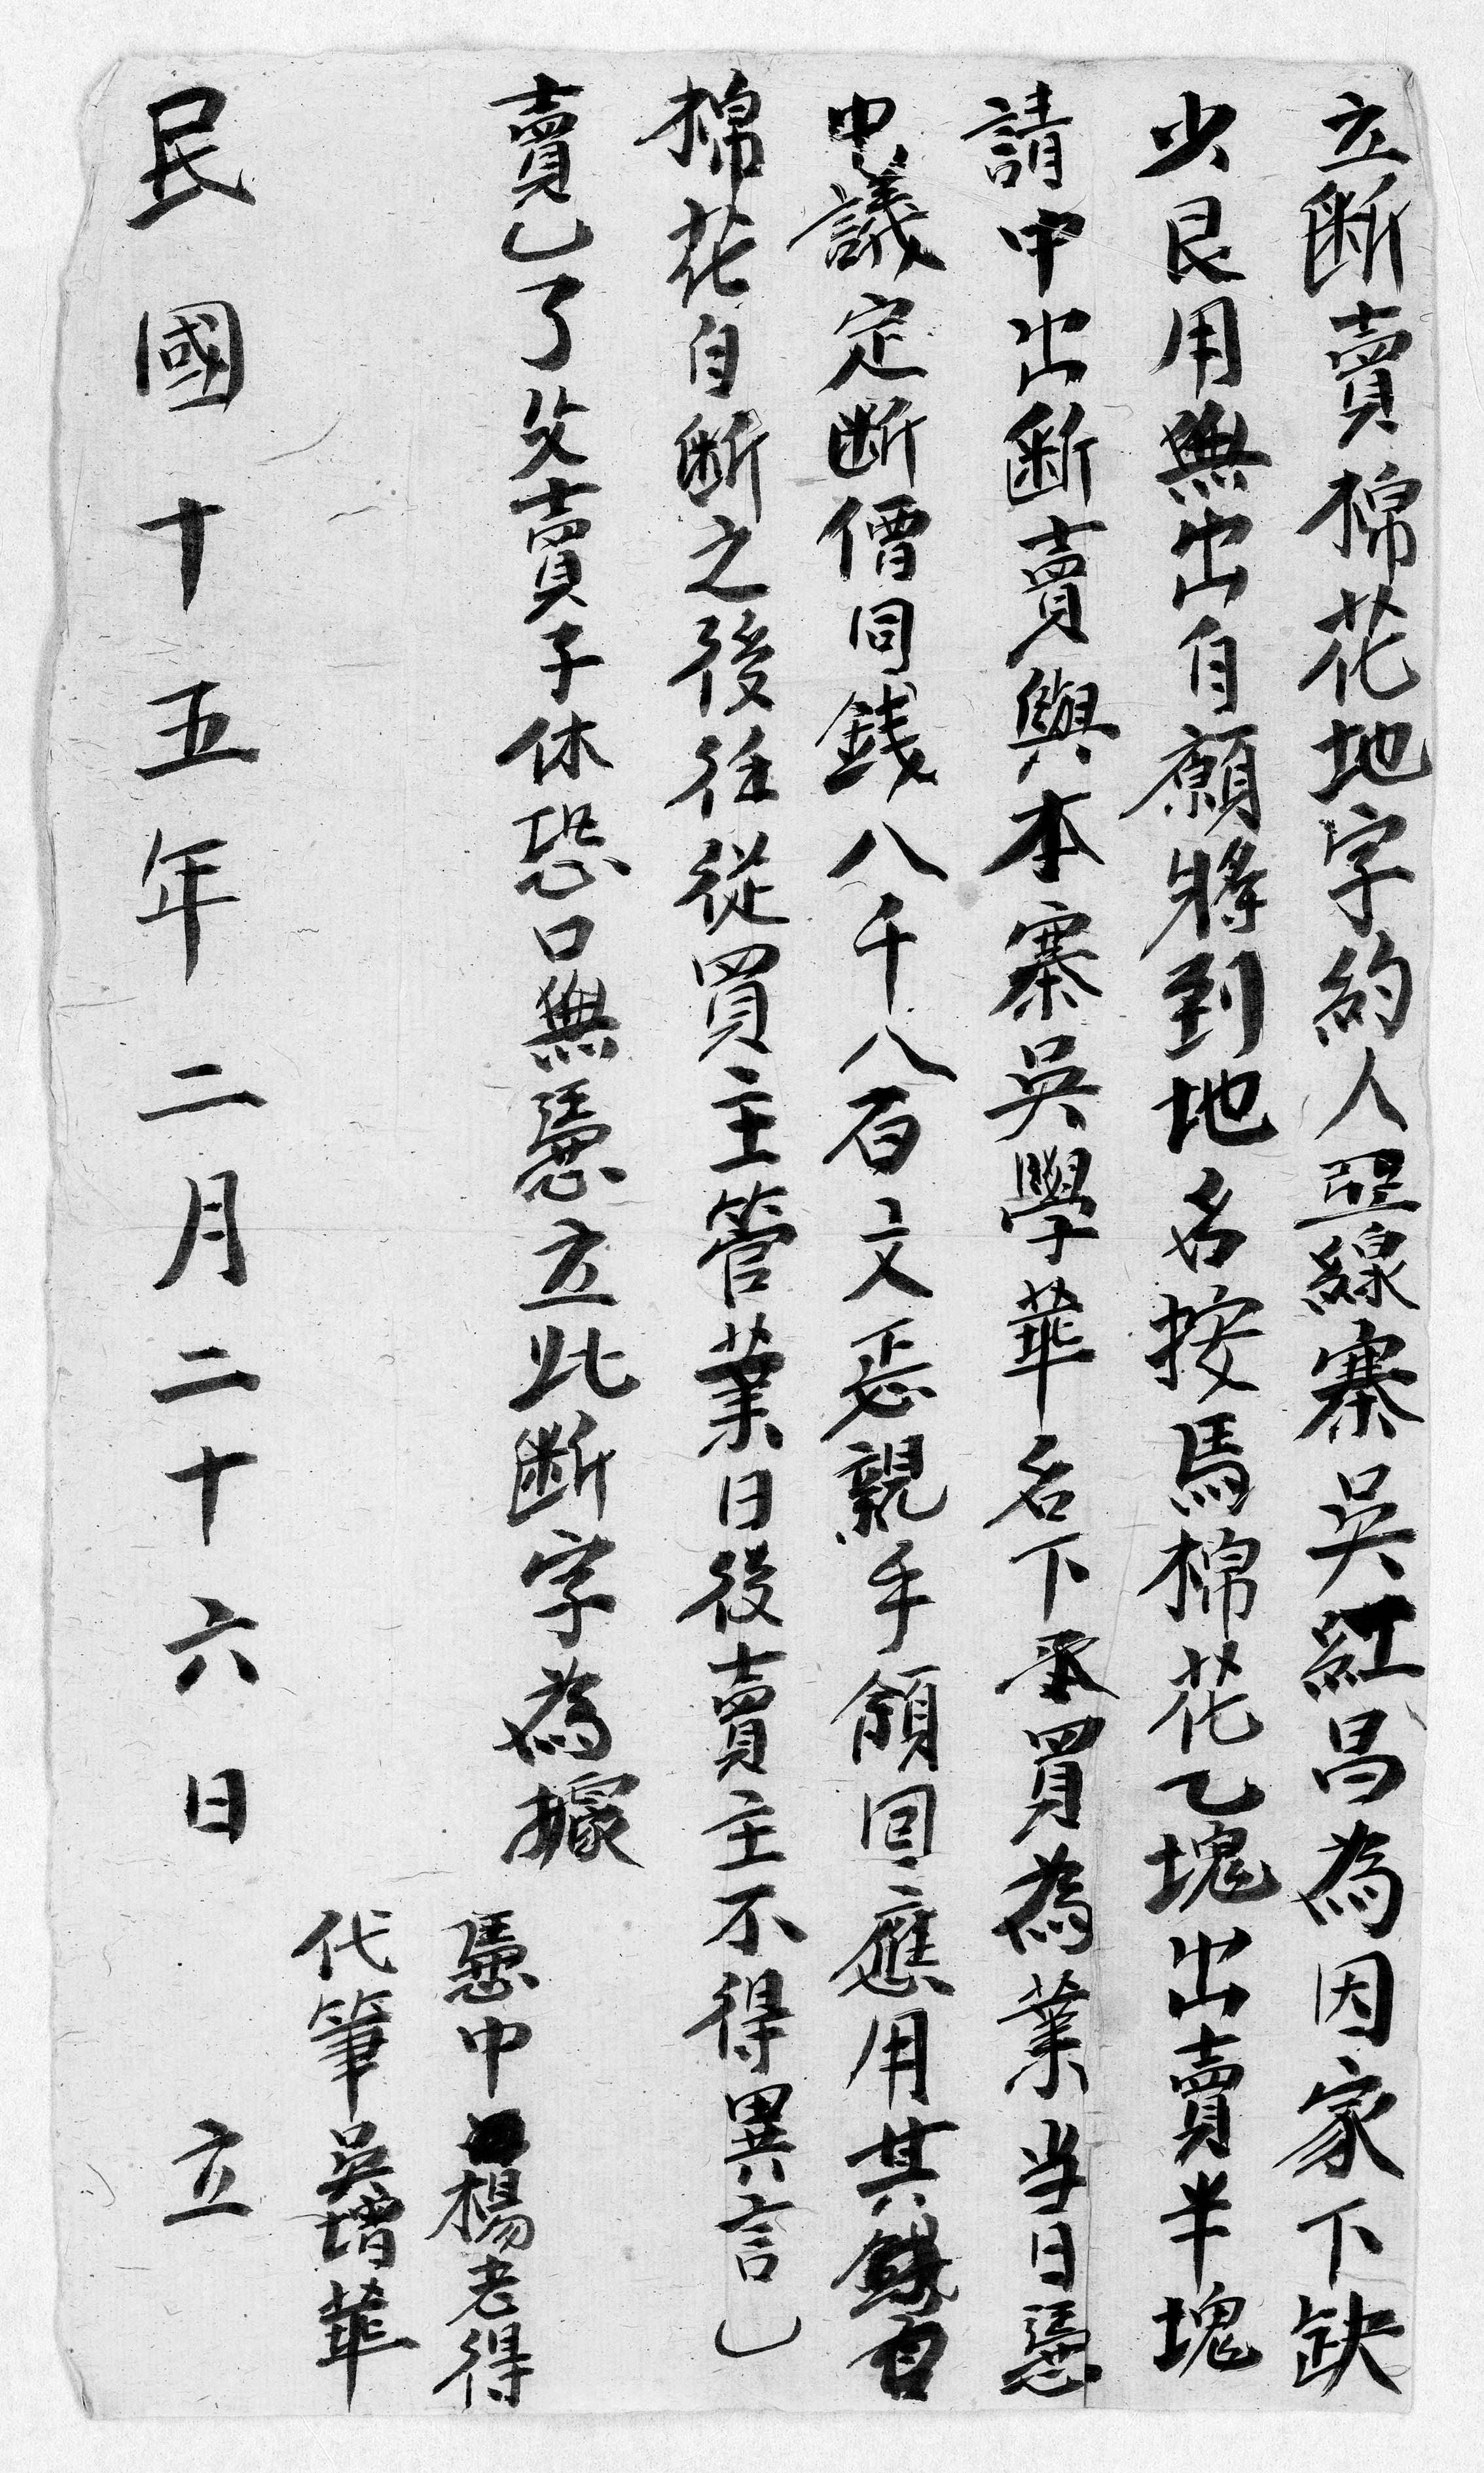 立断賣棉花地字約人亞線寨吳紅昌為因家下缺
少艮用無出自願將到地名按馬棉花乙塊出賣半塊
請中出断賣與本寨吳學華名下承買為業当日憑
中議定断價同錢八千八百文恁親手領回應用其錢自
棉花自断之後往從買主管業日後賣主不得異言乚
賣乚了父賣子休恐口無憑立此断字為據
憑中楊老得
代筆吳增華
民國十五年二月二十六日立